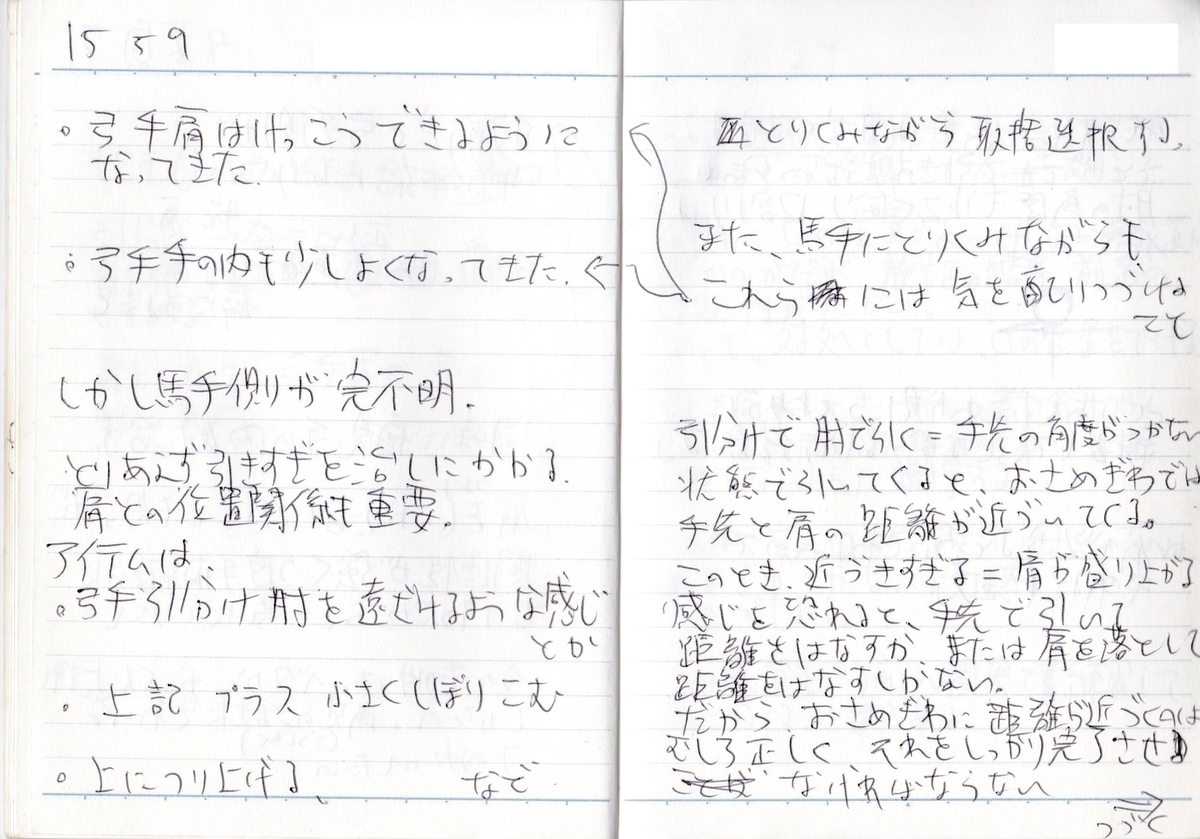 1559
。弓手肩はけっこうできるように
なってきた.
。弓手手の内も少しよくなってきた. ←
しかし馬手側が完不明.
とりあえず引きすぎを治しにかかる.
肩との位置関係も重要.
アイテムは、
。弓手引分け肘を遠だけるような感じ
とか
・上記 プラス 小さくしぼりこむ
。上につり上げる、 など
とりくみながら 取捨選択する。
また、馬手にとりくみながらも
これら には 気を配りつづける
こと
引分けで 肘で引く=手先の角度がつかない
状態で引いてくると、おさめぎわでは
手先と肩の距離が近づいてくる。
このとき、近づきすぎる=肩が盛り上がる
感じを恐れると、手先で引いて
距離をはなすか、または肩を落として
距離をはなすしかない。
だから おさめぎわに 距離が近づくのは
むしろ正しく、それをしっかり完了させ
なければならない
⇒
つづく